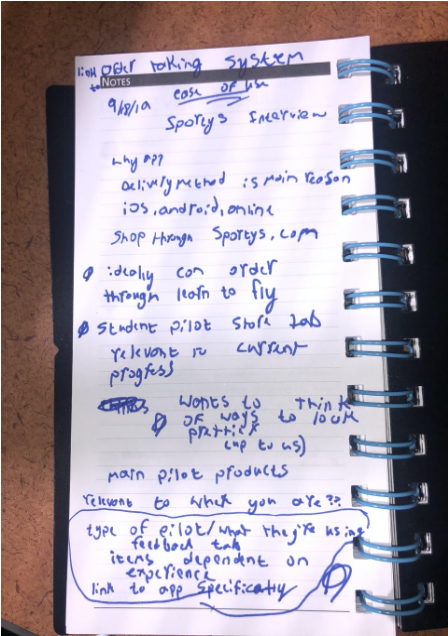 link order taking system
to NOTES
ease of use
9/18/19
Sportys Interview
why app
delivery method is main reason
iOS, android, online
Shop through Sportys.com
ideally can order
through learn to fly
student pilot store tab
relevant to current
progress
wants to think
of ways to look
prettier
(up to us)
main pilot products
relevant to where you are??
type of pilot/what they're using
feedback tab
items dependent on
experience
link to app specifically